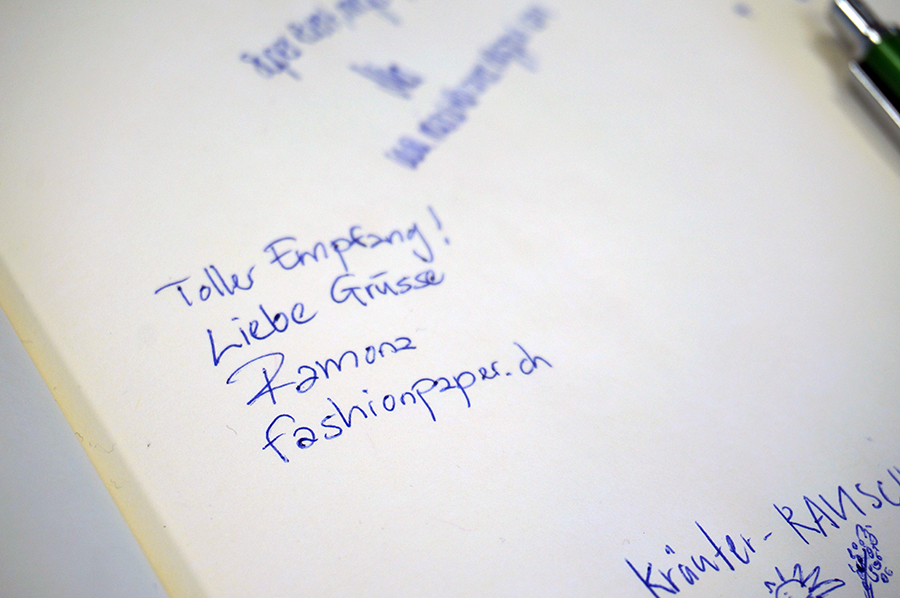 Toller Empfang!
Liebe Grüsse
Ramona
fashionpaper.ch
Kräuter-RAUSCH